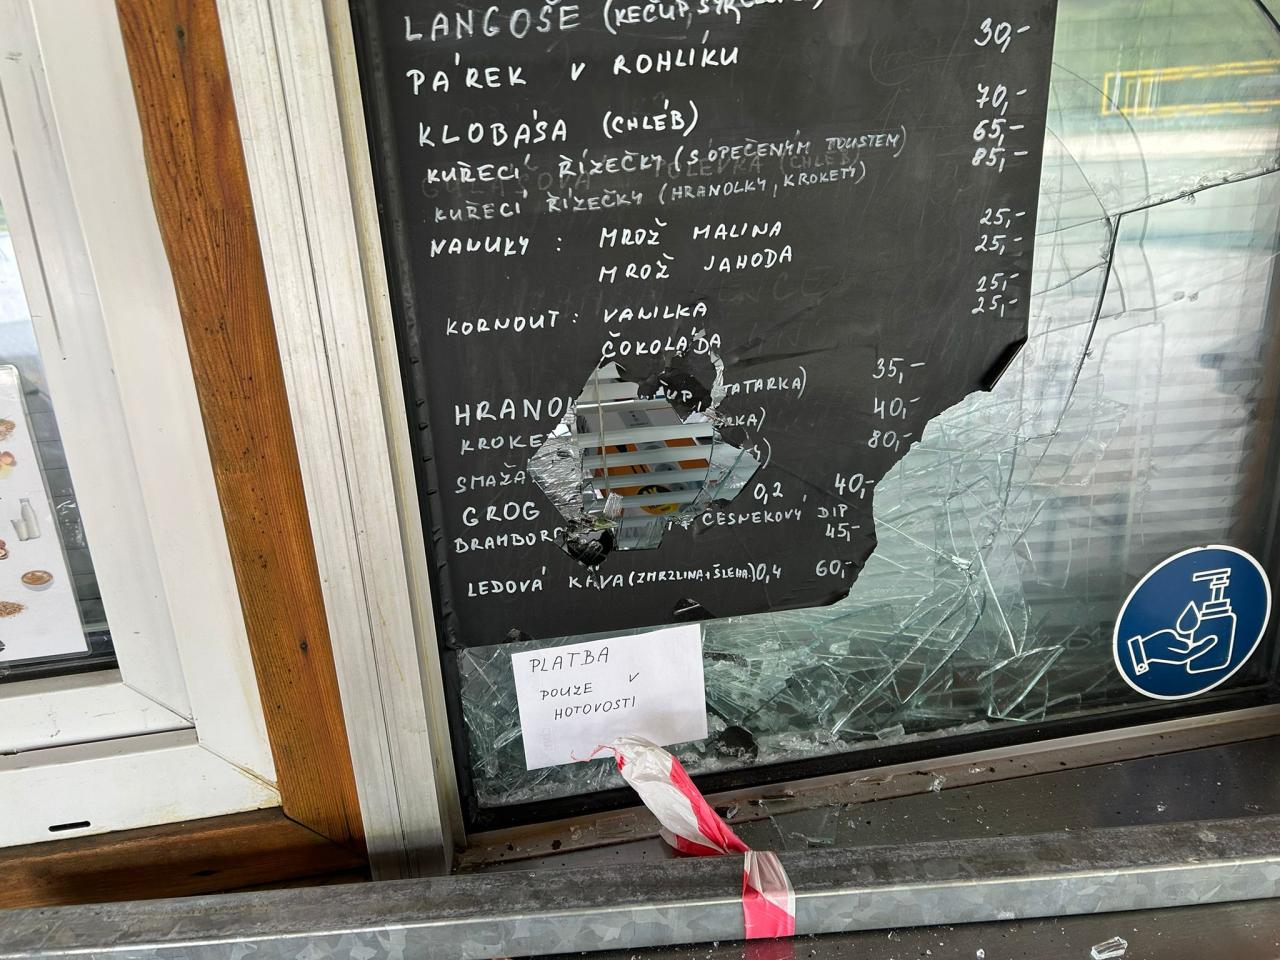 LANGOŠE (KEČUP,
PÁREK V ROHLÍKU 30,-
KLOBÁSA (CHLÉB) 70,-
KUŘECÍ ŘÍZEČKY (S OPEČENÝM TOUSTEM) 65,-
KUŘECÍ ŘÍZEČKY (HRANOLKY, KROKETY) 85,-
NANUKY : MROŽ MALINA 25,-
MROŽ JAHODA 25,-
KORNOUT : VANILKA 25,-
ČOKOLÁDA 25,-
HRANOL UP, TATARKA) 35,-
KROKE RKA) 40,-
SMAŽ 80,-
GROG 0,2 40,-
BRAMBOR ČESNEKOVÝ DIP 45,-
LEDOVÁ KÁVA (ZMRZLINA+ŠLEHA.) 0,4 60,-
PLATBA
POUZE V
HOTOVOSTI